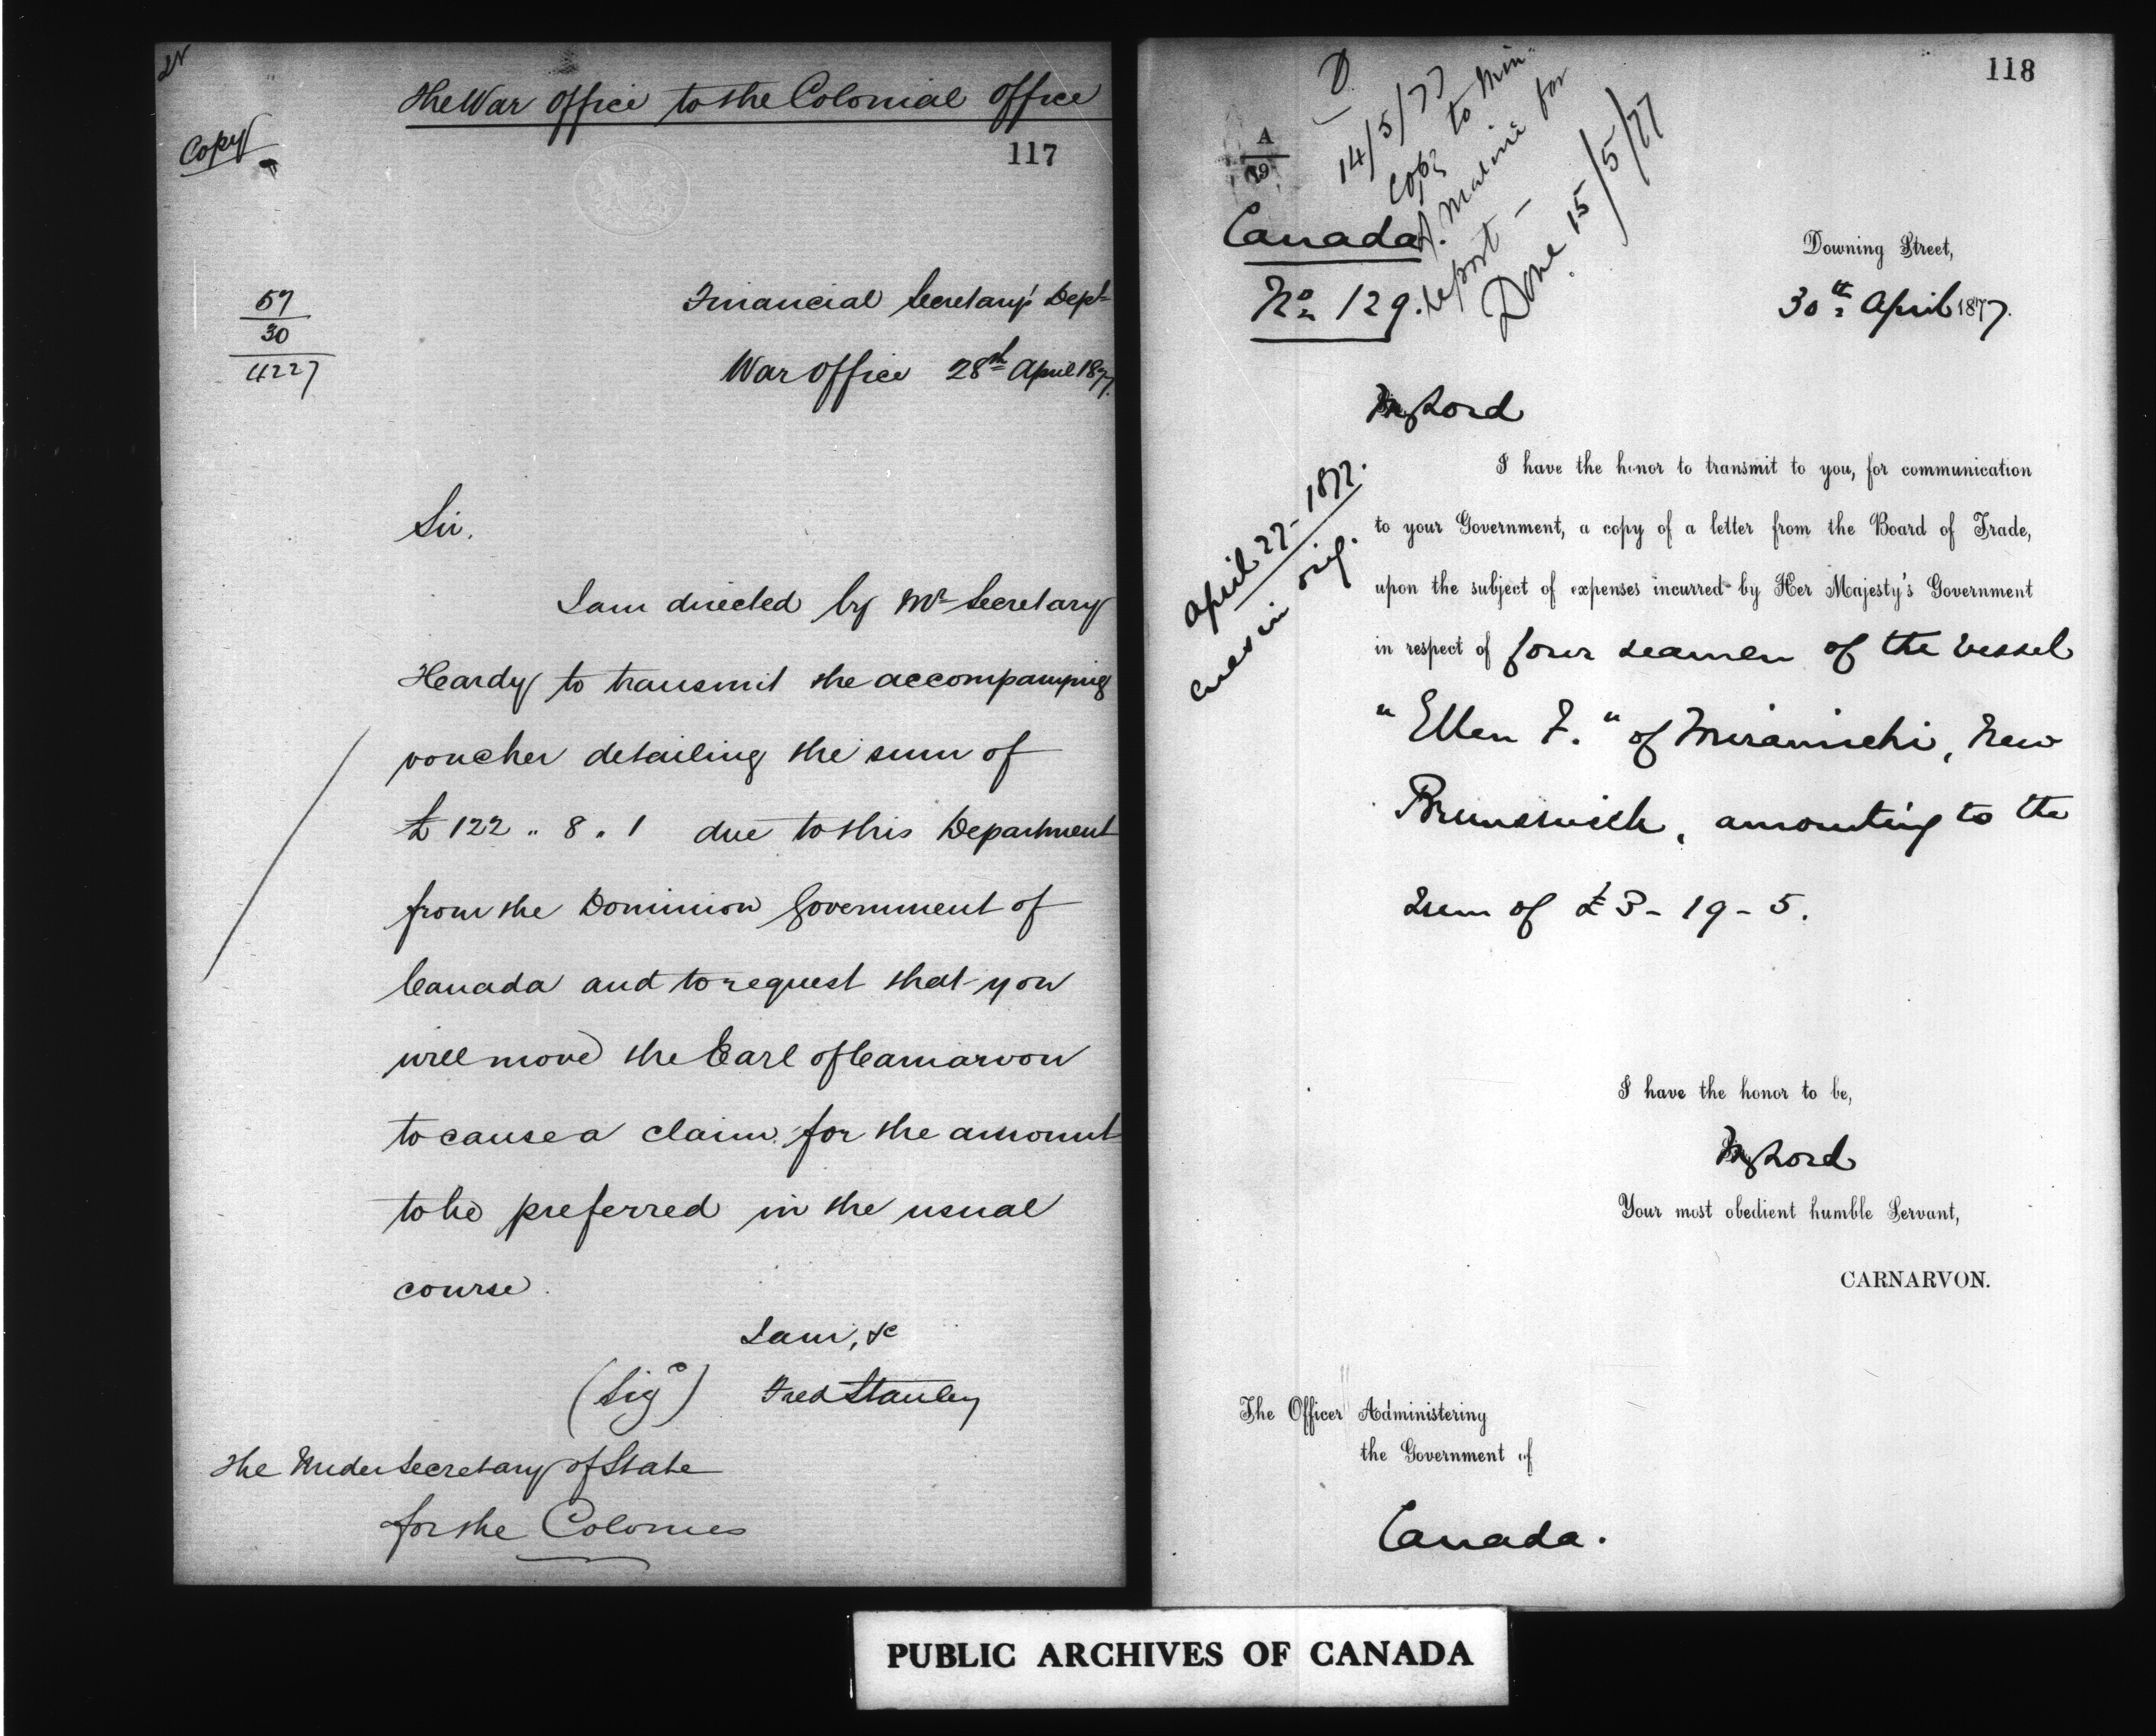 The War Office to the Colonial Office
Copy
117
57
30
4227
Financial Secretary's Dept
War Office 28th April 1877.
Sir,
I am directed by Mr Secretary
Heardy to transmit the accompanying
voucher detailing the sum of
£122 " 8 " 1 due to this Department
from the Dominion Government of
Canada and to request that you
will move the Earl of Carnarvon
to cause a claim for the amount
to be preferred in the usual
course.
I am, &c
(Sigd) Fred Stanley
The Under Secretary of State
for the Colonies
118
D
14/5/77
Copy to Min.
of Marine for
report –
Done 15/5/77
A
19
Canada
No 129.
Downing Street,
30th April 1877.
My Lord
April 27 - 1877.
Encs in orig.
I have the honor to transmit to you, for communication
to your Government, a copy of a letter from the Board of Trade,
upon the subject of expenses incurred by Her Majesty's Government
in respect of four seamen of the vessel
"Ellen F." of Miramichi, New
Brunswick, amounting to the
sum of £3 - 19 - 5.
I have the honor to be,
My Lord
Your most obedient humble Servant,
CARNARVON.
The Officer Administering
the Government of
Canada.
PUBLIC ARCHIVES OF CANADA